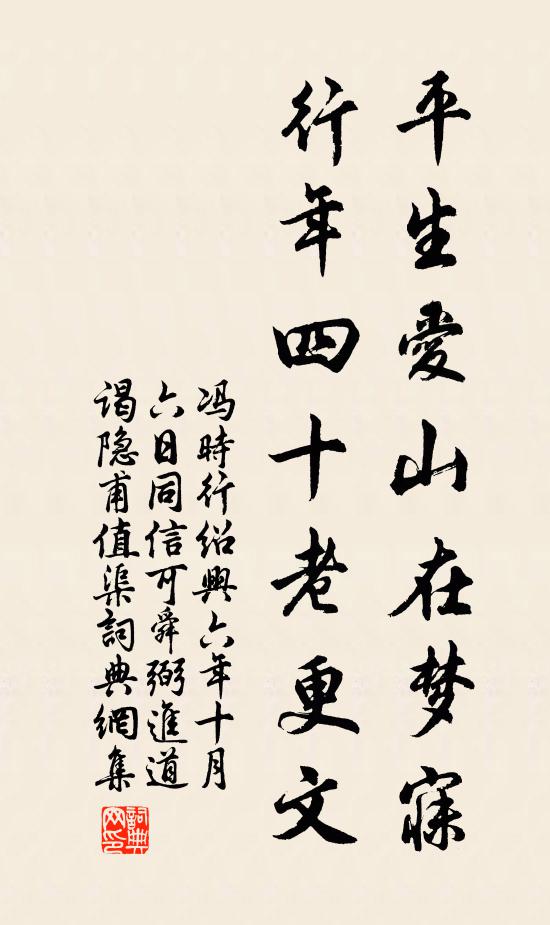 平生愛山在梦寐
行年四十老更文
冯時行绍興六年十月
六日同信可舜弼進道
谒隐甫值渠詞典網集
詞典网印